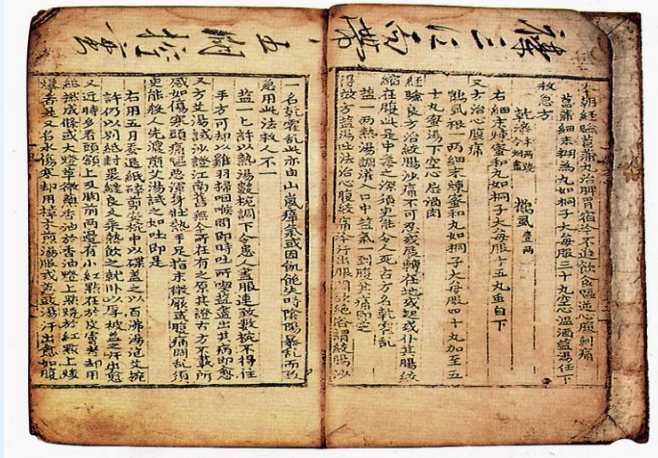 本朝經驗菖蒲丸治脾胃宿冷不追飮食嘔逆心腹刺痛
菖蒲細末糊爲丸如桐子大每服三十丸空心溫酒鹽湯任下
救急方
右細末煉蜜和丸如桐子大每服十五丸
又方治心腹痛
鶴虱 一兩細末煉蜜和丸如桐子大每服四十丸加至五
十丸蜜湯下空心忌酒肉
經驗良方治絞腸沙痛不可忍或展轉在地或起或仆其腸絞
縮在腹此是中毒之深須臾能令人死古方名乾霍乱
鹽一兩熱湯調灌入口中鹽氣一到腹其痛即止
得效方鹽湯吐法治心腹絞痛冷汗出脹悶欲絕俗謂絞腸沙
一名乾霍乱此亦由山嵐瘴氣或因飢飽失時陰陽暴乱而致
急用此法救人不一
鹽一匕許以熱湯數椀調下令患人盡服連致數椀不得住
手方可却以雞羽掃咽喉間即時吐所喫鹽湯盡出其病即愈
又方艾湯試沙證江南舊無今所在有之原其證古方不載所
感如傷寒頭痛嘔惡渾身壯熱手足指末微厥或腹痛悶乱須
臾能殺人先濃煎艾湯試之如吐即是
右用五月蠶退紙碎剪安椀中以楪蓋之以百沸湯泡艾椀
許仍以別紙封裹縫良久乘熱飮之就卧以厚被蓋之汗出愈
又近時多看頭額上及胸前兩邊有小紅點在於皮膚者却用
紙撚成條或大燈草微蘸香油於香油燈上點燒於紅點上焌
爆者是又名水傷寒却用樟木煎湯服或荔豉湯汗出愈如腹